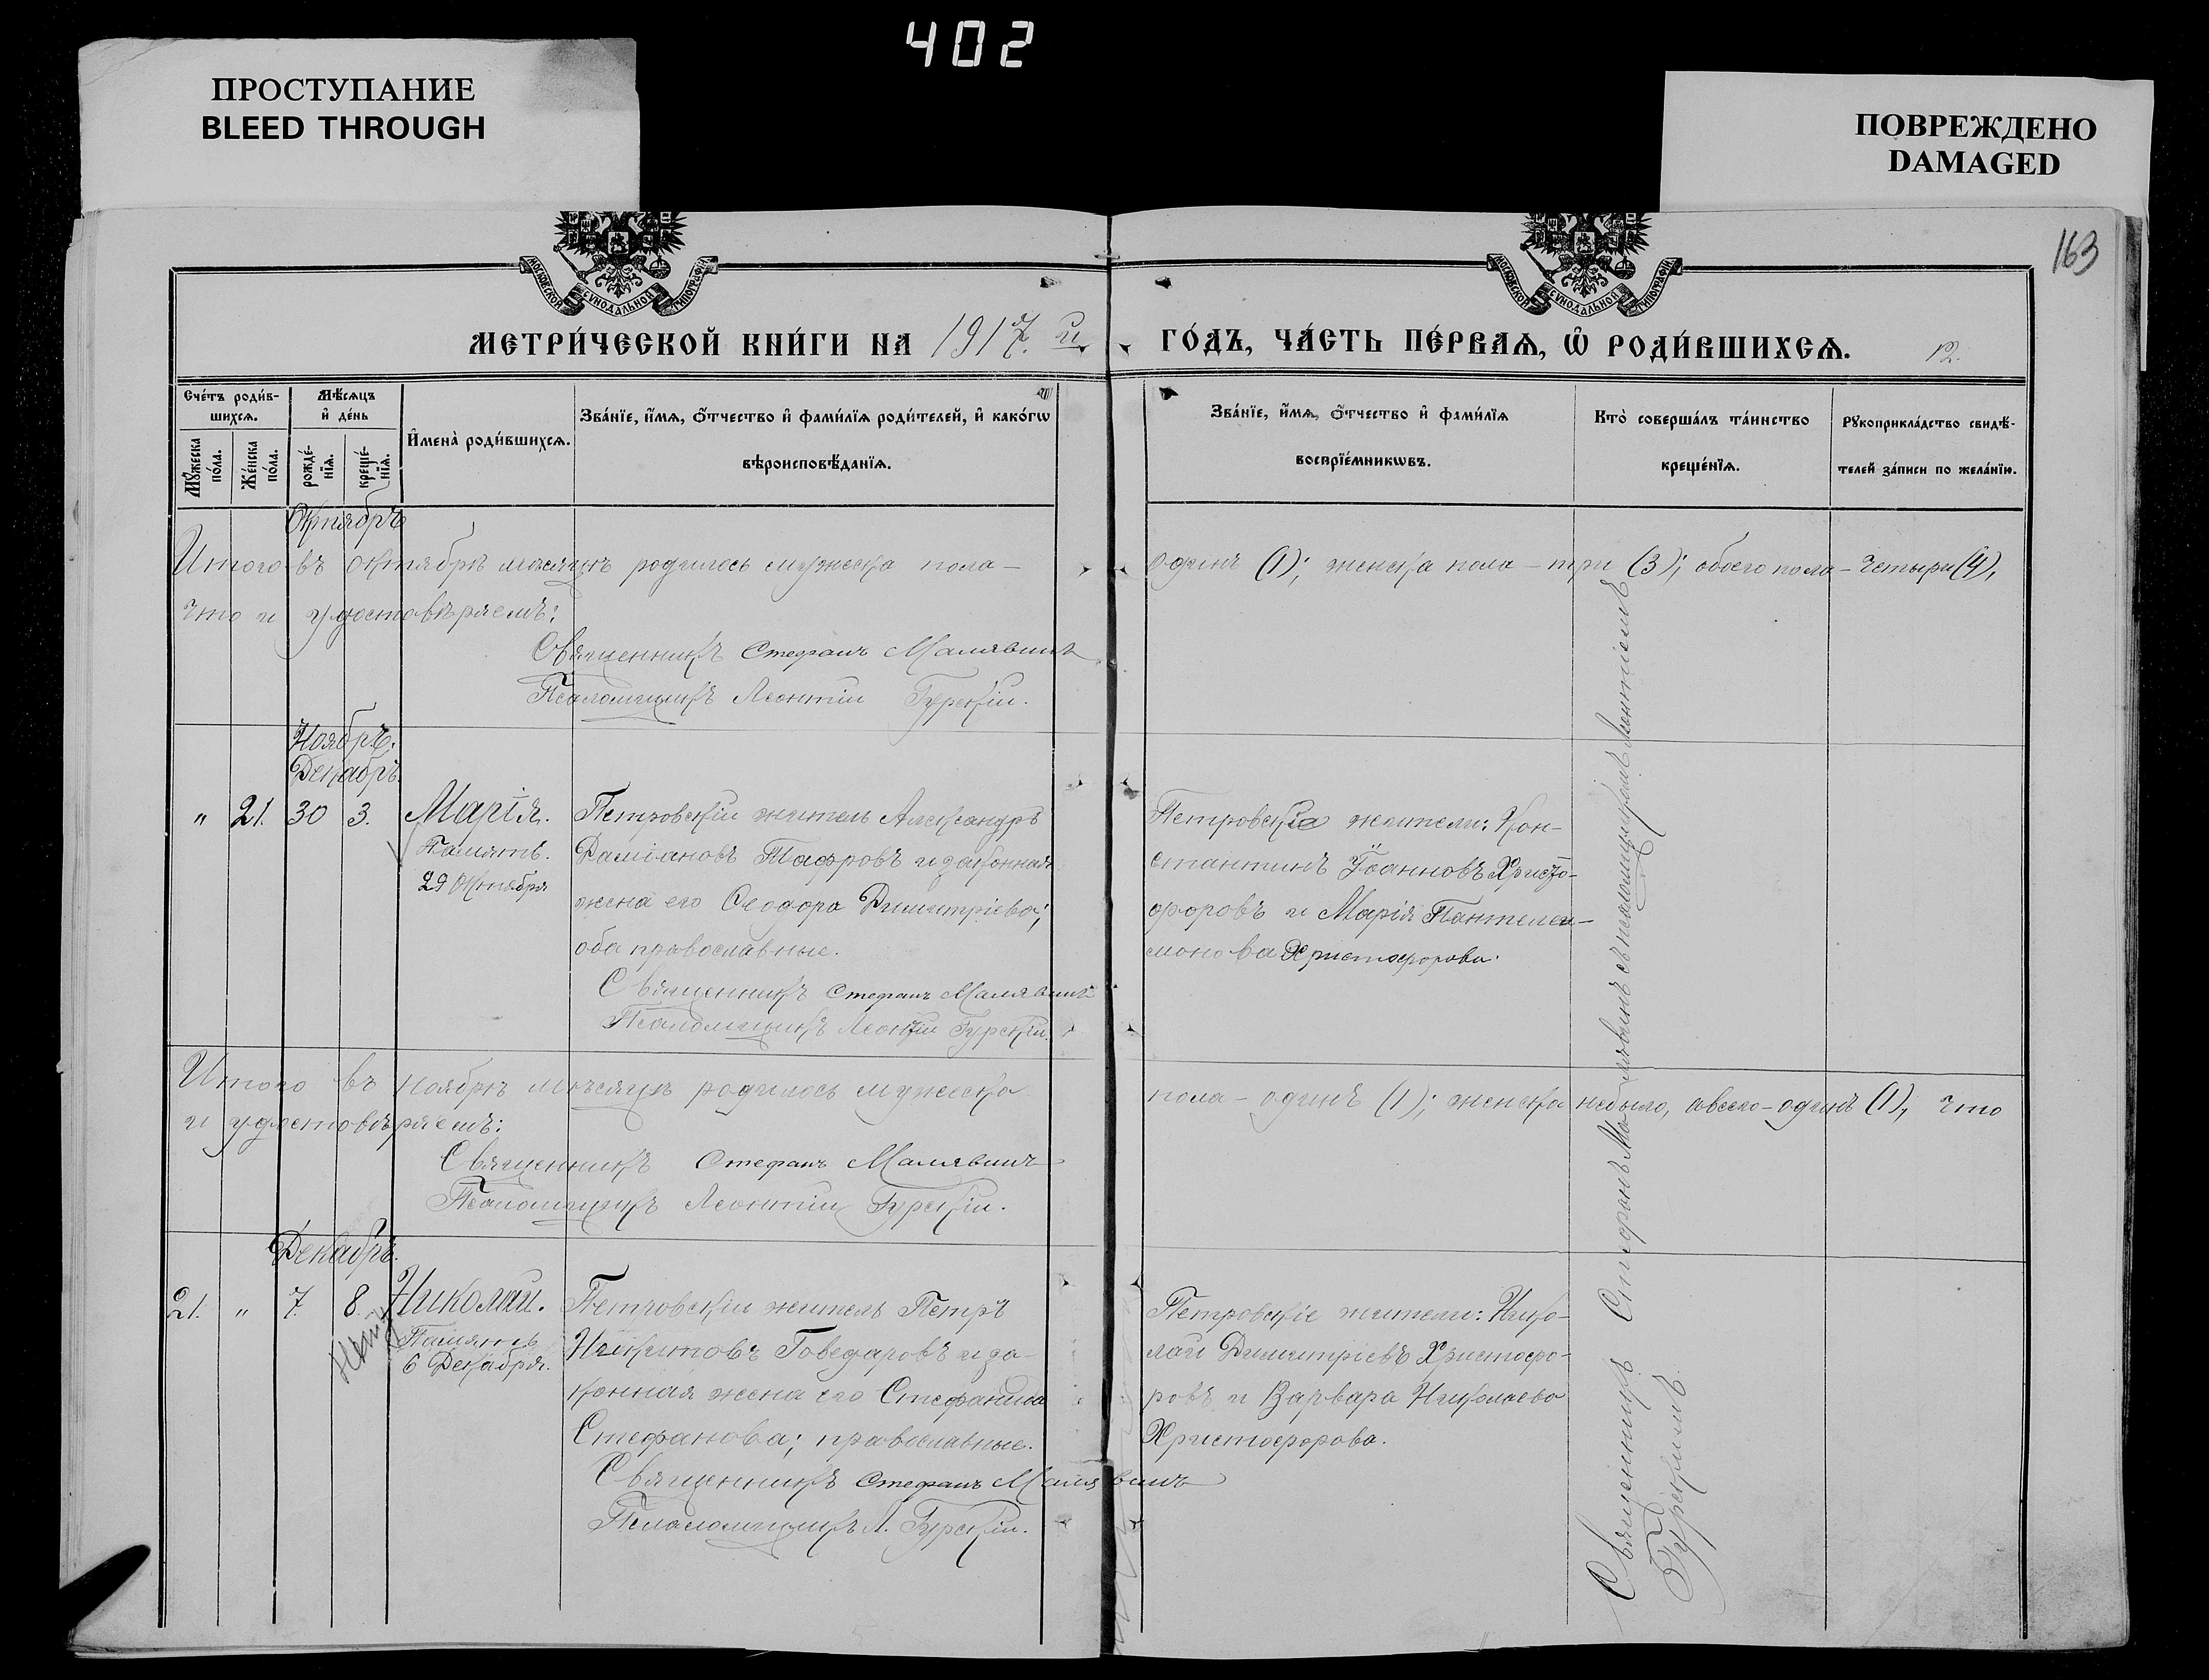 402
ПРОСТУПАНИЕ
BLEED THROUGH
ПОВРЕЖДЕНО
DAMAGED
163
МОСКОВСКОЙ СѴНОДАЛЬНОЙ ТИПОГРАФІИ
МОСКОВСКОЙ СѴНОДАЛЬНОЙ ТИПОГРАФІИ
МЕТРИ́ЧЕСКОЙ КНИ́ГИ НА 1917. й
ГО́ДЪ, ЧА́СТЬ ПЕ́РВАѦ, Ѡ҆ РОДИ́ВШИХСѦ.
12.
Сче́тъ роди́в-
шихсѧ.
Мꙋ́жеска по́ла.
Же́нска по́ла.
Мѣ́сѧцъ
и҆ де́нь
рожде́-
нїѧ.
креще́-
нїѧ.
И҆мена̀ роди́вшихсѧ.
Зва́нїе, и҆́мѧ, ѻ҆́тчество и҆ фами́лїѧ роди́телей, и҆ како́гѡ
вѣроисповѣ́данїѧ.
Зва́нїе, и҆́мѧ, ѻ҆́тчество и҆ фами́лїѧ
воспрїе́мникѡвъ.
Кто̀ соверша́лъ та́инство
креще́нїѧ.
Рꙋкоприкла́дство свидѣ́-
телей за́писи по жела́нїю.
Октябрь
Итого въ октябрѣ мѣсяцѣ родилось мужеска пола —
одинъ (1); женска пола — три (3); обоего пола — четыри (4),
что и удостовѣряемъ:
Священникъ Стефанъ Малявинъ
Псаломщикъ Леонтій Гурскій.
Ноябрь.
Декабрь.
" 21. 30 3. Марія.
Память.
29 Октября
Петровскій житель Александръ
Даміановъ Тафровъ и законная
жена его Ѳеодора Димитріева;
оба православные.
Священникъ Стефанъ Малявинъ
Псаломщикъ Леонтій Гурскій.
Петровскіе жители: Кон-
стантинъ Іоанновъ Христо-
форовъ и Марія Пантелеи-
монова Христофорова.
Итого въ ноябрѣ мѣсяцѣ родилось мужеска
пола — одинъ (1); женска небыло, а всего — одинъ (1), что
и удостовѣряемъ:
Священникъ Стефанъ Малявинъ
Псаломщикъ Леонтій Гурскій.
Декабрь.
21. " 7. 8. Николай.
Память
6 Декабря.
Петровскій житель Петръ
Никитовъ Говедаровъ и за-
конная жена его Стефанида
Стефанова; православные.
Священникъ Стефанъ Малявинъ
Псаломщикъ Л. Гурскій.
Петровскіе жители: Нико-
лай Димитріевъ Христофо-
ровъ и Варвара Николаева
Христофорова.
Священникъ Стефанъ Малявинъ съ псаломщикомъ Леонтіемъ
Гурскимъ